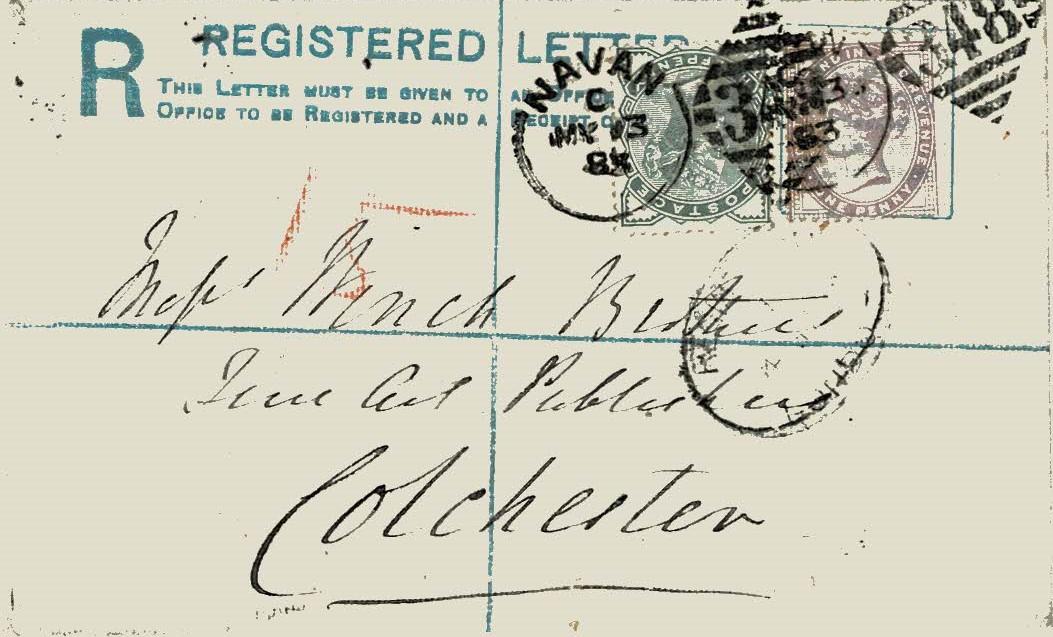 R
REGISTERED LETTER
THIS LETTER MUST BE GIVEN TO AN OFFICE
OFFICE TO BE REGISTERED AND A RECEIPT O
NAVAN
C
MY 13
83
POSTAGE
REVENUE
ONE PENNY
348
15
Messrs Wench Brothers
Fine Art Publishers
Colchester